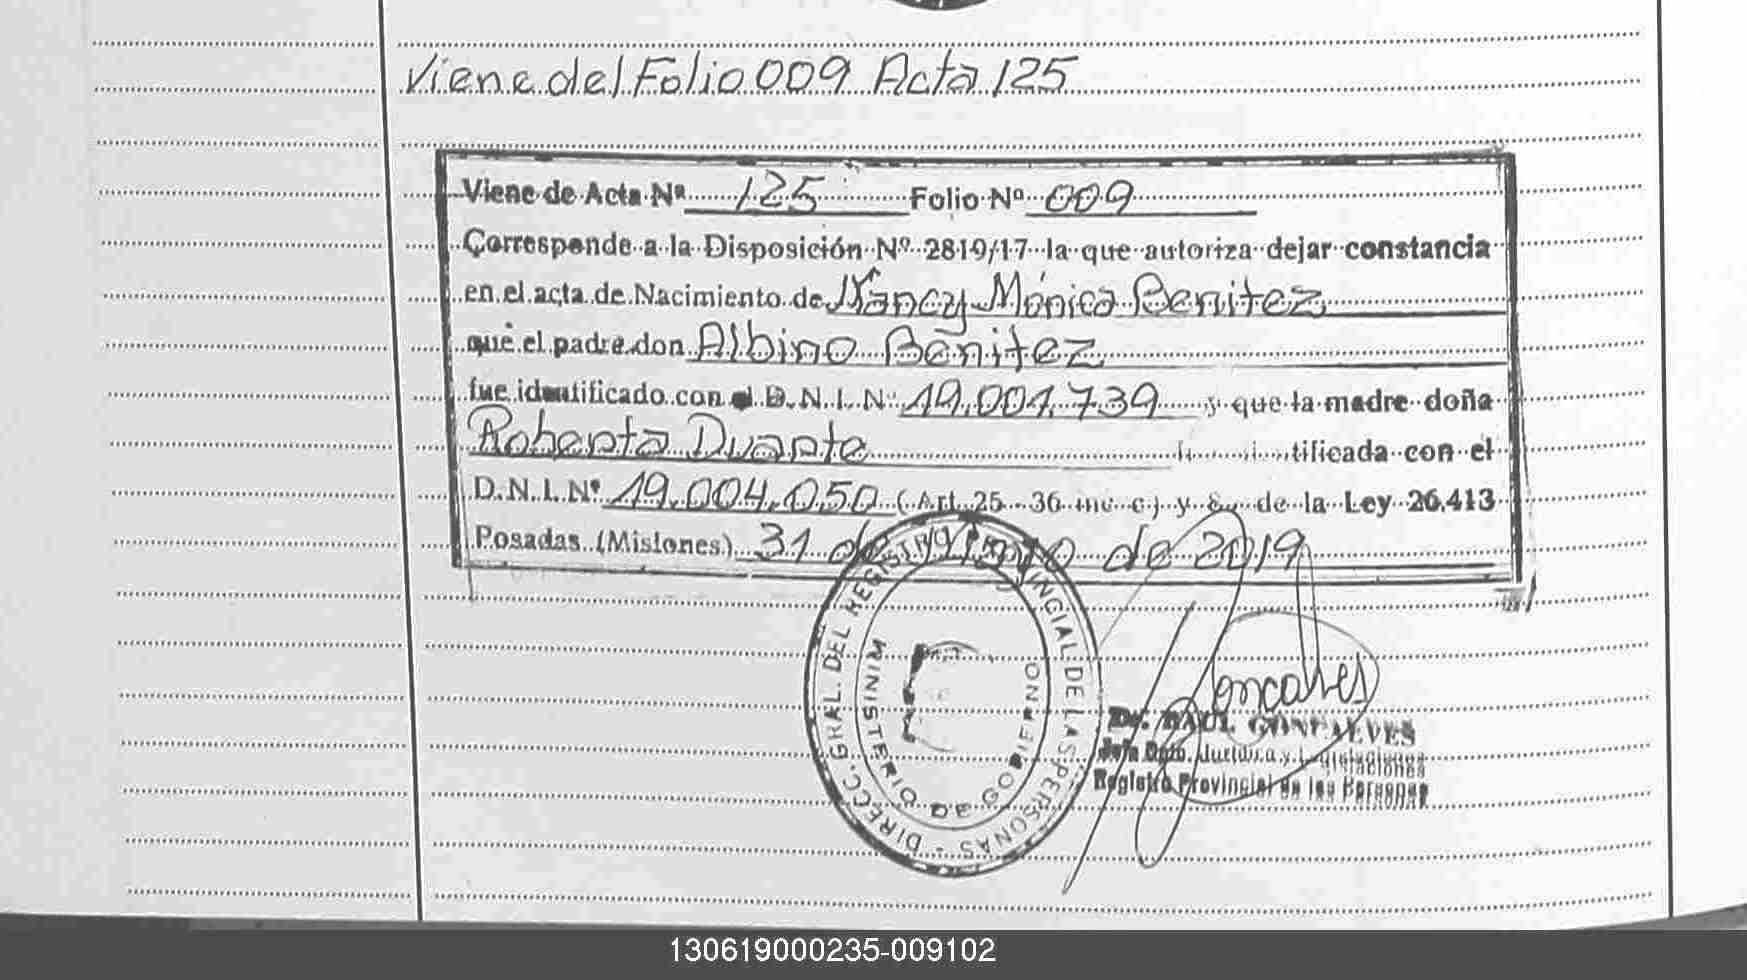 Viene del Folio 009 Acta 125
Viene de Acta Nº 125 Folio Nº 009
Corresponde a la Disposición Nº 2819/17 la que autoriza dejar constancia
en el acta de Nacimiento de Nancy Mónica Benitez
que el padre don Albino Benitez
fue identificado con el D.N.I. Nº 19.001.739 y que la madre doña
Roberta Duarte tificada con el
D.N.I. Nº 19.004.050 (Art. 25 - 36 inc c) y de la Ley 26.413
Posadas (Misiones) 31 de Mayo de 2019
DIRECC. GRAL. DEL REGISTRO PROVINCIAL DE LAS PERSONAS -
MINISTERIO DE GOBIERNO
Goncalves
Dr. RAUL GONCALVES
Jefe Dpto. Jurídica y
Registro Provincial de las Personas
130619000235-009102